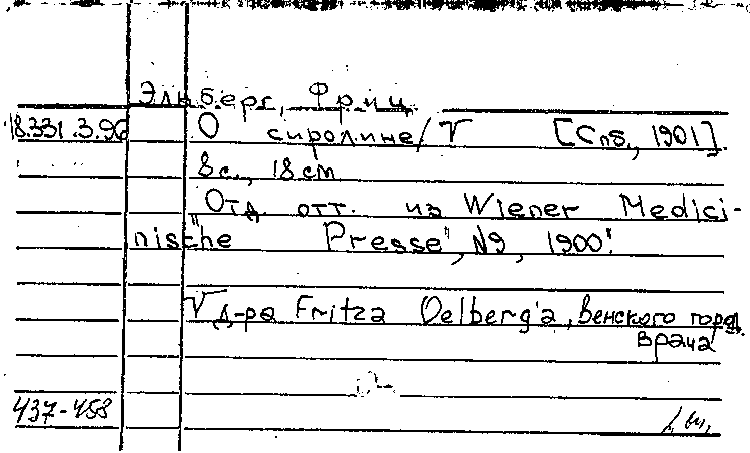 Эльберг, Фриц.
18.331.3.96 О сиролине/ V [Спб., 1901].
8 с., 18 см
Отд. отт. из Wiener Medici-
nische Presse", №9, 1900.
V Д-ра Fritza Oelberg'a, Венского город.
врача
437-458